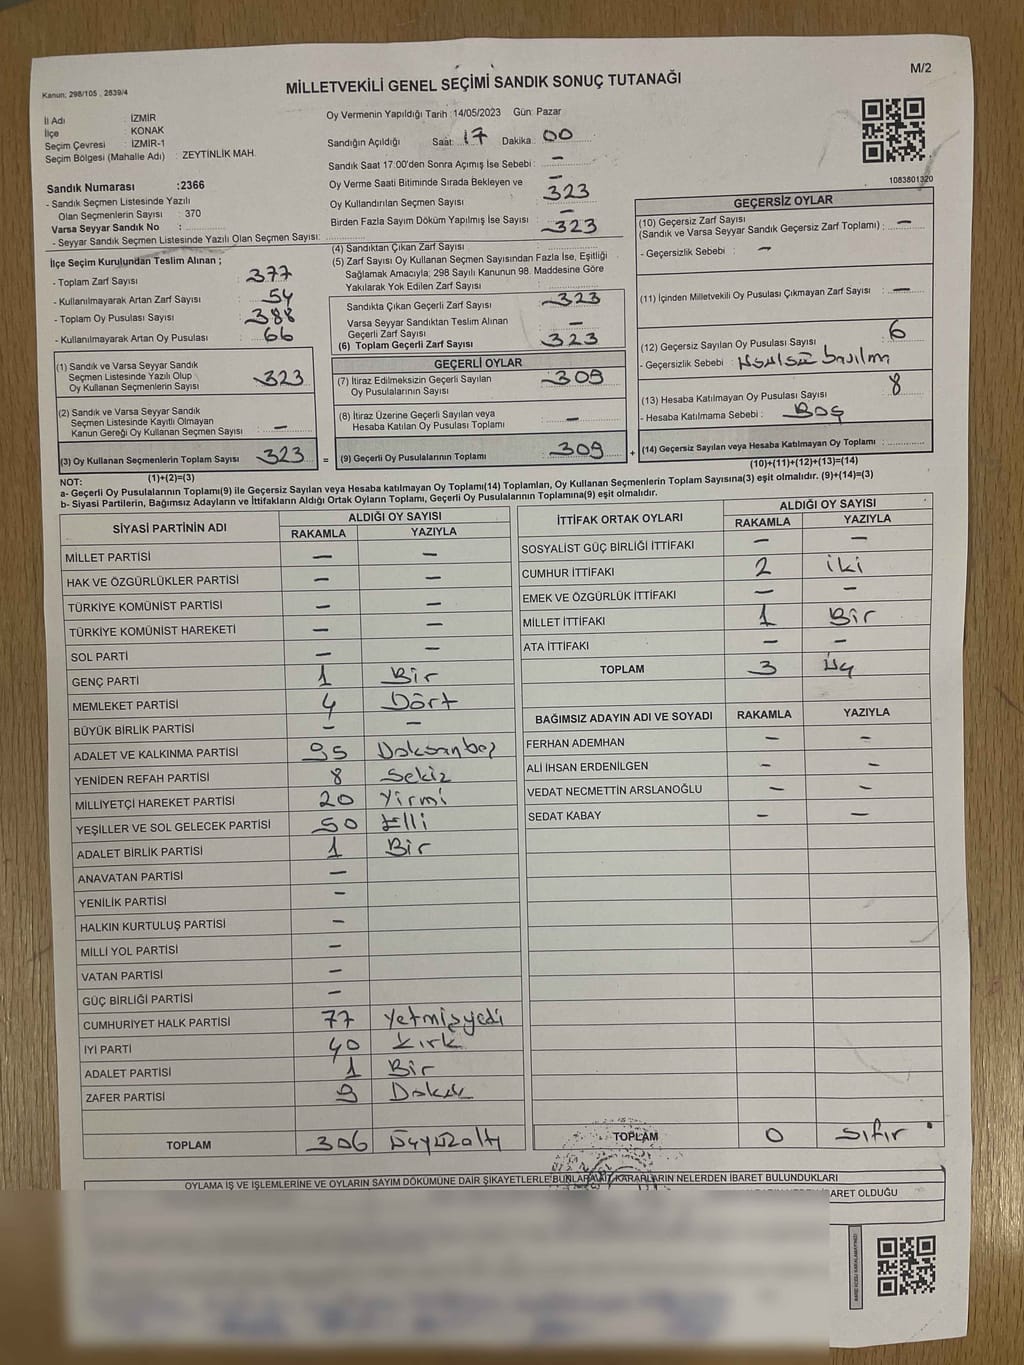 M/2
Kanun: 298/105 , 2839/4
MİLLETVEKİLİ GENEL SEÇİMİ SANDIK SONUÇ TUTANAĞI
İl Adı İZMİR
İlçe KONAK
Seçim Çevresi : İZMİR-1
Seçim Bölgesi (Mahalle Adı) : ZEYTİNLİK MAH.
Sandık Numarası :2366
- Sandık Seçmen Listesinde Yazılı
Olan Seçmenlerin Sayısı : 370
Varsa Seyyar Sandık No :
- Seyyar Sandık Seçmen Listesinde Yazılı Olan Seçmen Sayısı:
Oy Vermenin Yapıldığı Tarih :14/05/2023 Gün: Pazar
Sandığın Açıldığı Saat: 17 Dakika: 00
Sandık Saat 17:00'den Sonra Açımış İse Sebebi : —
Oy Verme Saati Bitiminde Sırada Bekleyen ve —
Oy Kullandırılan Seçmen Sayısı 323
Birden Fazla Sayım Döküm Yapılmış İse Sayısı —
1083801320
İlçe Seçim Kurulundan Teslim Alınan ;
- Toplam Zarf Sayısı : 377
- Kullanılmayarak Artan Zarf Sayısı : 54
- Toplam Oy Pusulası Sayısı : 388
- Kullanılmayarak Artan Oy Pusulası : 66
(1) Sandık ve Varsa Seyyar Sandık
Seçmen Listesinde Yazılı Olup
Oy Kullanan Seçmenlerin Sayısı 323
(2) Sandık ve Varsa Seyyar Sandık
Seçmen Listesinde Kayıtlı Olmayan
Kanun Gereği Oy Kullanan Seçmen Sayısı —
(3) Oy Kullanan Seçmenlerin Toplam Sayısı 323 =
(1)+(2)=(3)
(4) Sandıktan Çıkan Zarf Sayısı : 323
(5) Zarf Sayısı Oy Kullanan Seçmen Sayısından Fazla İse, Eşitliği
Sağlamak Amacıyla; 298 Sayılı Kanunun 98. Maddesine Göre
Yakılarak Yok Edilen Zarf Sayısı :
Sandıkta Çıkan Geçerli Zarf Sayısı : 323
Varsa Seyyar Sandıktan Teslim Alınan
Geçerli Zarf Sayısı —
(6) Toplam Geçerli Zarf Sayısı : 323
GEÇERLİ OYLAR
(7) İtiraz Edilmeksizin Geçerli Sayılan
Oy Pusulalarının Sayısı : 309
(8) İtiraz Üzerine Geçerli Sayılan veya
Hesaba Katılan Oy Pusulası Toplamı : —
(9) Geçerli Oy Pusulalarının Toplamı : 309 +
GEÇERSİZ OYLAR
(10) Geçersiz Zarf Sayısı
(Sandık ve Varsa Seyyar Sandık Geçersiz Zarf Toplamı) : —
- Geçersizlik Sebebi : —
(11) İçinden Milletvekili Oy Pusulası Çıkmayan Zarf Sayısı : —
(12) Geçersiz Sayılan Oy Pusulası Sayısı : 6
- Geçersizlik Sebebi :
(13) Hesaba Katılmayan Oy Pusulası Sayısı : 8
- Hesaba Katılmama Sebebi : Boş
(14) Geçersiz Sayılan veya Hesaba Katılmayan Oy Toplamı :
(10)+(11)+(12)+(13)=(14)
NOT:
a- Geçerli Oy Pusulalarının Toplamı(9) ile Geçersiz Sayılan veya Hesaba katılmayan Oy Toplamı(14) Toplamları, Oy Kullanan Seçmenlerin Toplam Sayısına(3) eşit olmalıdır. (9)+(14)=(3)
b- Siyasi Partilerin, Bağımsız Adayların ve İttifakların Aldığı Ortak Oyların Toplamı, Geçerli Oy Pusulalarının Toplamına(9) eşit olmalıdır.
SİYASİ PARTİNİN ADI ALDIĞI OY SAYISI
RAKAMLA YAZIYLA
MİLLET PARTİSİ — —
HAK VE ÖZGÜRLÜKLER PARTİSİ — —
TÜRKİYE KOMÜNİST PARTİSİ — —
TÜRKİYE KOMÜNİST HAREKETİ — —
SOL PARTİ — —
GENÇ PARTİ 1 Bir
MEMLEKET PARTİSİ 4 Dört
BÜYÜK BİRLİK PARTİSİ — —
ADALET VE KALKINMA PARTİSİ 95 Doksanbeş
YENİDEN REFAH PARTİSİ 8 Sekiz
MİLLİYETÇİ HAREKET PARTİSİ 20 Yirmi
YEŞİLLER VE SOL GELECEK PARTİSİ 50 Elli
ADALET BİRLİK PARTİSİ 1 Bir
ANAVATAN PARTİSİ —
YENİLİK PARTİSİ —
HALKIN KURTULUŞ PARTİSİ —
MİLLİ YOL PARTİSİ —
VATAN PARTİSİ —
GÜÇ BİRLİĞİ PARTİSİ —
CUMHURİYET HALK PARTİSİ 77 Yetmişyedi
İYİ PARTİ 40 Kırk
ADALET PARTİSİ 1 Bir
ZAFER PARTİSİ 9 Dokuz
TOPLAM 306 Üçyüzaltı
İTTİFAK ORTAK OYLARI ALDIĞI OY SAYISI
RAKAMLA YAZIYLA
SOSYALİST GÜÇ BİRLİĞİ İTTİFAKI — —
CUMHUR İTTİFAKI 2 iki
EMEK VE ÖZGÜRLÜK İTTİFAKI — —
MİLLET İTTİFAKI 1 Bir
ATA İTTİFAKI — —
TOPLAM 3 Üç
BAĞIMSIZ ADAYIN ADI VE SOYADI RAKAMLA YAZIYLA
FERHAN ADEMHAN — —
ALİ İHSAN ERDENİLGEN — —
VEDAT NECMETTİN ARSLANOĞLU — —
SEDAT KABAY — —
TOPLAM 0 sıfır
OYLAMA İŞ VE İŞLEMLERİNE VE OYLARIN SAYIM DÖKÜMÜNE DAİR ŞİKAYETLERLE BUNLARA AİT KARARLARIN NELERDEN İBARET BULUNDUKLARI
İBARET OLDUĞU